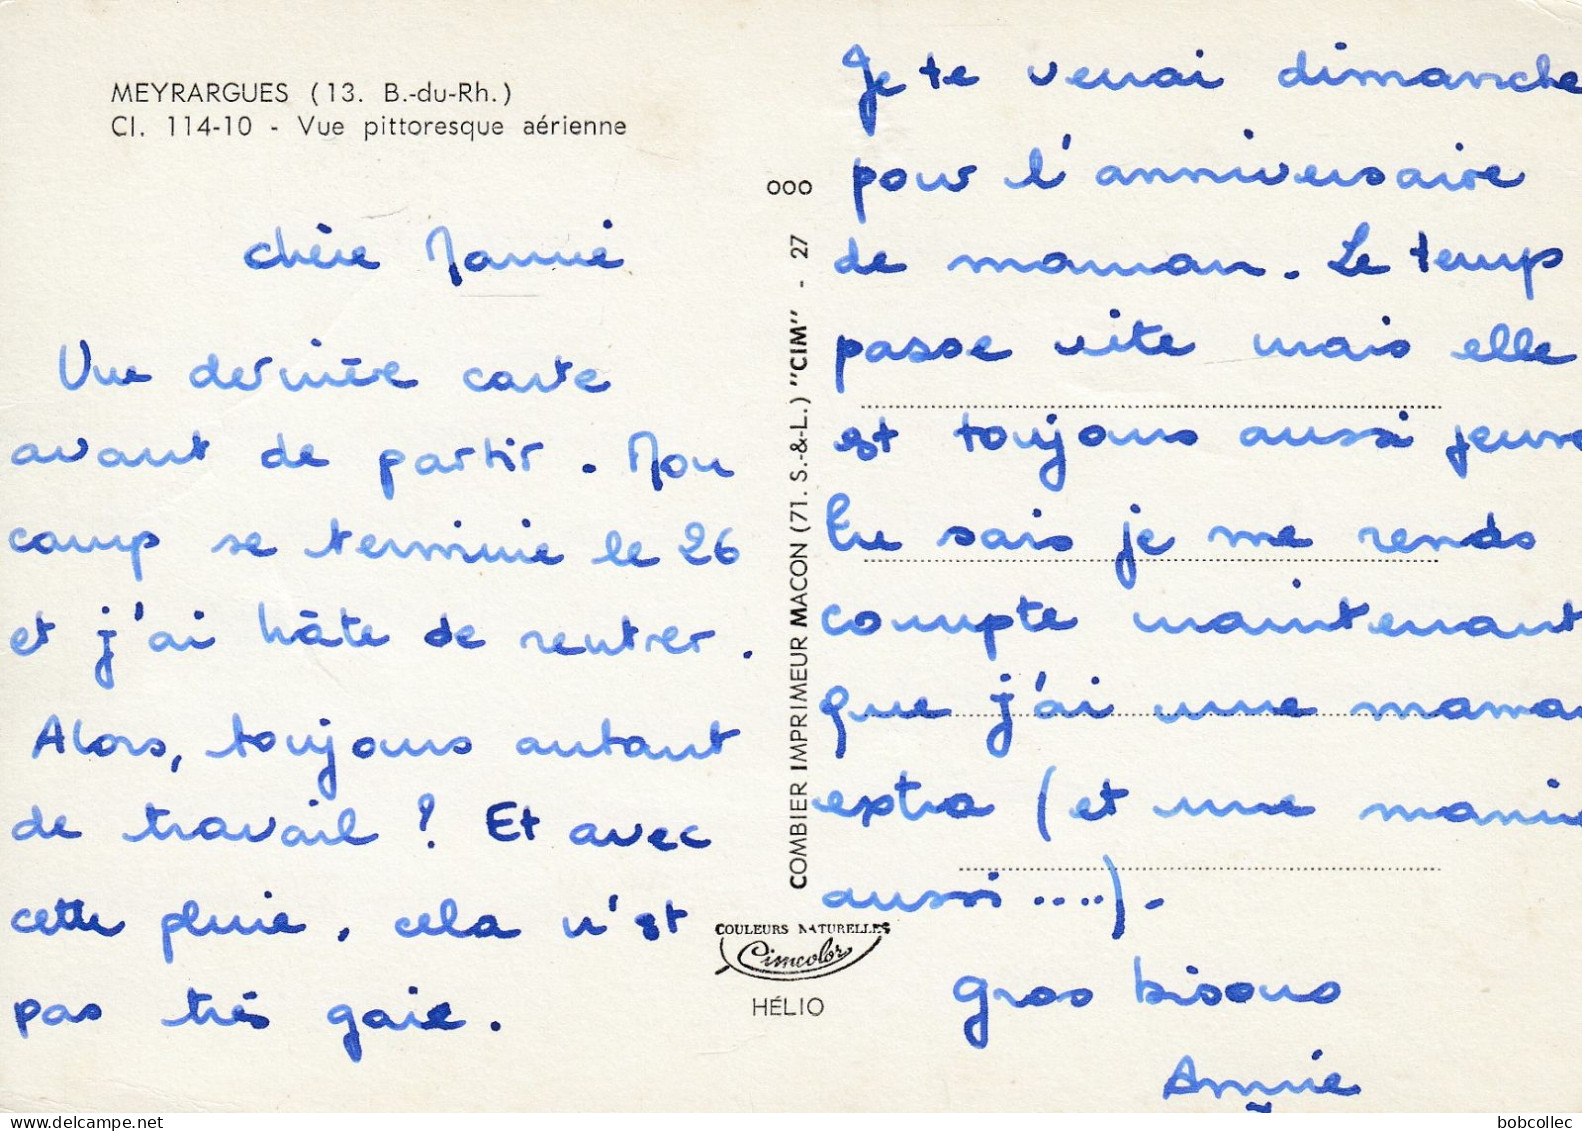 MEYRARGUES (13. B.-du-Rh.)
Cl. 114-10 - Vue pittoresque aérienne
chère Mannie
Une dernière carte
avant de partir. Mon
camp se termine le 26
et j'ai hâte de rentrer.
Alors, toujours autant
de travail ? Et avec
cette pluie, cela n'est
pas très gaie.
COMBIER IMPRIMEUR MACON (71. S.-&-L.) "CIM" - 27 000
COULEURS NATURELLES
Cimcolor
HÉLIO
Je te verrai dimanche
pour l'anniversaire
de maman. Le temps
passe vite mais elle
est toujours aussi jeune
Tu sais je me rends
compte maintenant
que j'ai une maman
extra (et une mannie
aussi ....).
Gros bisous
Annie
bobcollec